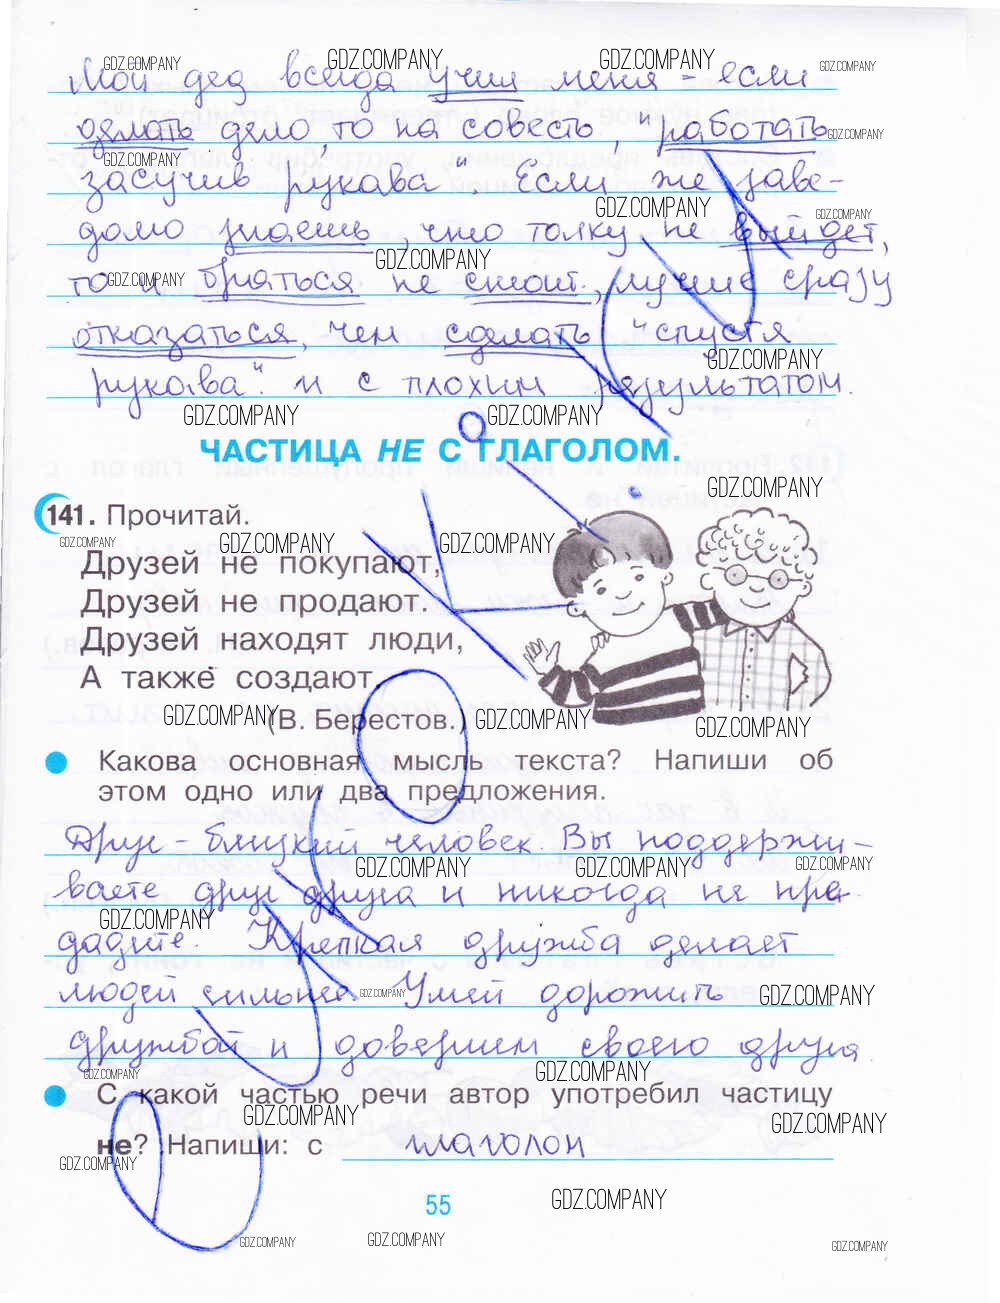 Мой дед всегда учил меня – если
делать дело, то на совесть, "работать
засучив рукава". Если же заве-
домо знаешь, что толку не выйдет,
то и браться не стоит, лучше сразу
отказаться, чем сделать "спустя
рукава". и с плохим результатом.
ЧАСТИЦА НЕ С ГЛАГОЛОМ.
141. Прочитай.
Друзей не покупают,
Друзей не продают.
Друзей находят люди,
А также создают.
(В. Берестов.)
Какова основная мысль текста? Напиши об
этом одно или два предложения.
Друг – близкий человек. Вы поддержи-
ваете друг друга и никогда не пре-
дадите. Крепкая дружба делает
людей сильнее. Умей дорожить
дружбой и доверием своего друга.
С какой частью речи автор употребил частицу
не? Напиши: с глаголом
55
GDZ.COMPANY